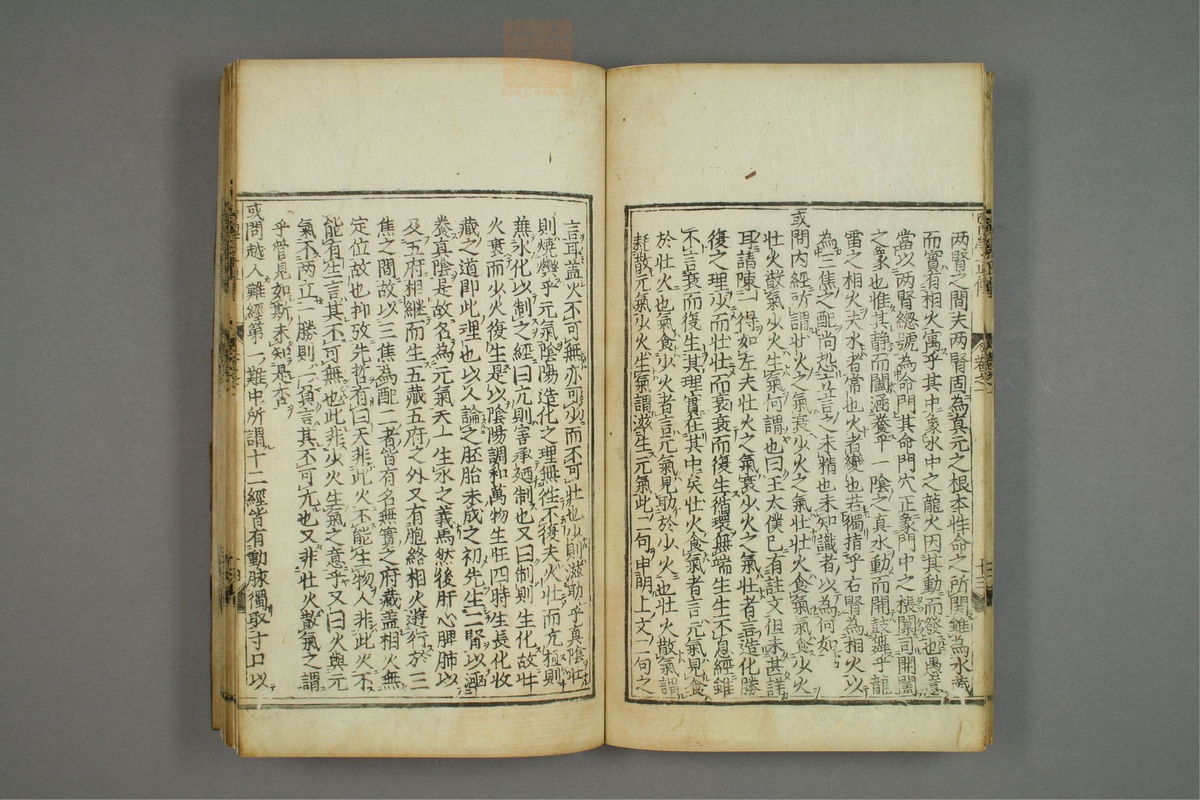 两腎之間夫两腎固為真元之根本性命之所関雖為水藏
而實有相火寓乎其中象水中之龍火因其動而發也愚意
當以两腎總號為命門其命門穴正象門中之棖闑司開闔
之象也惟其静而闔涵養乎一陰之真水動而開鼓舞乎龍
雷之相火夫水者常也火者變也若獨指乎右腎為相火以
為三焦之配尚恐立言之未精也未知識者以為何如
或問内經所謂壮火之氣衰少火之氣壮壮火食氣氣食少火
壮火散氣少火生氣何謂也曰王太僕已有註文但未甚詳
耳請陳一得如左夫壮火之氣衰少火之氣壮者言造化勝
復之理少而壮壮而衰衰而復生循環無端生生不息經雖
不言衰而復生其理實在其中矣壮火食氣者言元氣見食
於壮火也氣食少火者言元氣見助於少火也壮火散氣謂
耗散元氣少火生氣謂滋生元氣此二句申明上文二句之
言耳蓋火不可無亦可少而不可壮也少則滋助乎真陰壮
則燒爍乎元氣陰陽造化之理無徃不復夫火壮而亢極則
蕪水化以制之經曰亢則害承廼制也又曰制則生化故壮
火衰而少火復生是以陰陽調和萬物生旺四時生長化收
藏之道即此理也以人論之胚胎未成之初先生二腎以涵
養真陰是故名為元氣天一生水之義焉然後肝心脾肺以
及五府相継而生五藏五府之外又有胞絡相火遊行於三
焦之間故以三焦為配二者皆有名無實之府藏盖相火無
定位故也抑攷先哲有曰天非此火不能生物人非此火不
能有生言其不可無也此非少火生氣之意乎又曰火與元
氣不两立一勝則一負言其不可亢也又非壮火散氣之謂
乎管見如斯未知是否
或問越人難經第一難中所謂十二經皆有動脉獨取寸口以